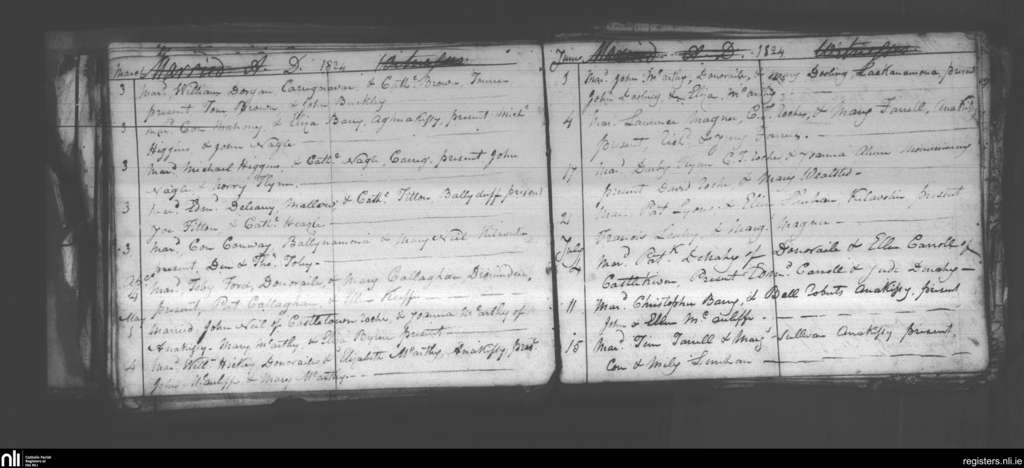 March Married A. D. 1824 Witnesses
3 Mard. William Dorgan Carrignavar, & Cathe. Brown,
present Tom Brown & John Buckley
3 Mard. Con Mahony & Eliza Barry Aghnakishy, present Michl.
Higgins & John Nagle
3 Mard. Michael Higgins, & Cathe. Nagle Carrig, present John
Nagle & Norry Flynn
3 Mard. Edmd. Deleany, Mallow, & Cathe. Fitton Ballyduff, present
Fitton & Cathe.
3 Mard. Con Conway, Ballynamona & Mary Neil
present, Den & Thos. Foley
4 Mard. Toby Ford, Donoraile, & Mary Callaghan
present, Pat Callaghan, &
May
1 Married John Neil of Castletown Roche, & Joanna McCarthy of
Anakissy. Mary McCarthy & Eliza Byrne Present
4 Mard. Willm. Hickey Donoraile & Elizabeth McCarthy, Anakissy, Prest.
John McAuliffe & Mary McCarthy
June Married A. D. 1824 Witnesses
1 Mard. John McCarthy, Donoraile, & Mary Dorling present
John Darling & Eliza. McCarthy
4 Mard. Laurence Magner, C.T. Roche, & Mary Farrell, Anakissy
present, Richd. &
17 Mard. Darby Flynn C.T. Roche & Joanna Ahern Monanimy
present David Roche & Mary
2 Mard. Pat Lyons & Eliz Linehan Kilavullen present
Francis & Marg. Magner
July
4 Mard. Patk. Donahy of Donoraile & Ellen Carroll of
Castlekevin, Present Edmd. Carroll & Jude Donahy
11 Mard. Christopher Barry, & Ball Roberts Anakissy, present
Jn. & Ellen McAuliffe
15 Mard. Tim Farrell & Mary Sullivan Anakissy present,
Con & Mily Linehan
nli Catholic Parish
Registers at
the NLI
registers.nli.ie